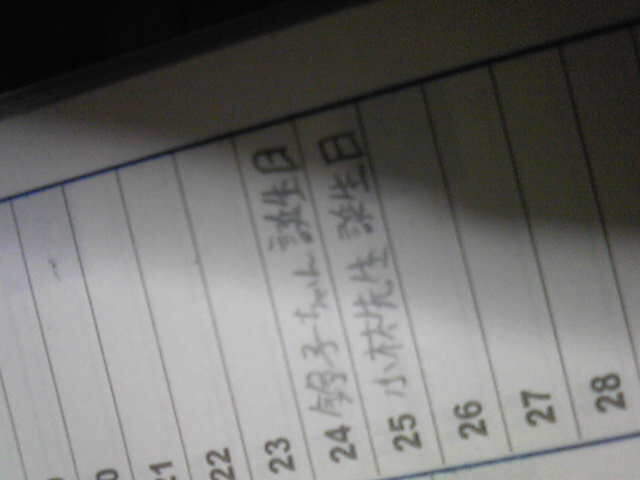 22
23
24 鈴子ちゃん 誕生日
25 小林先生 誕生日
26
27
28